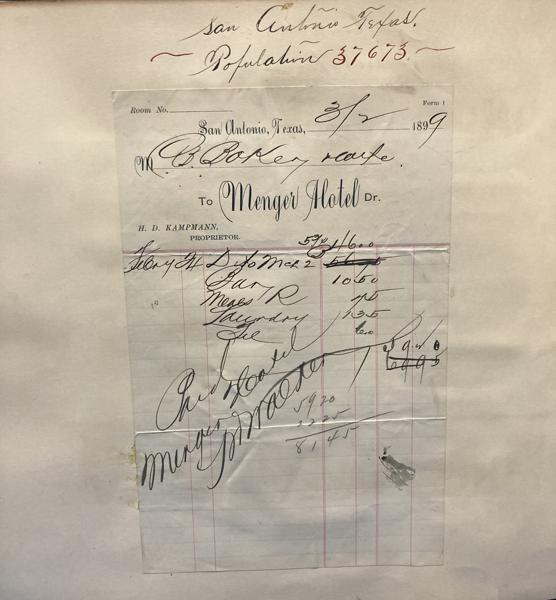 San Antonio Texas.
~ Population 37673. ~
Room No.
Form 1
San Antonio, Texas, 3/2 1899
M C. B. Baker, wife.
To Menger Hotel Dr.
H. D. KAMPMANN,
PROPRIETOR.
46.00
to Mar 2
10.50
Meals R 75
Laundry 135
60
Paid
Menger Hotel
5920
2225
8145